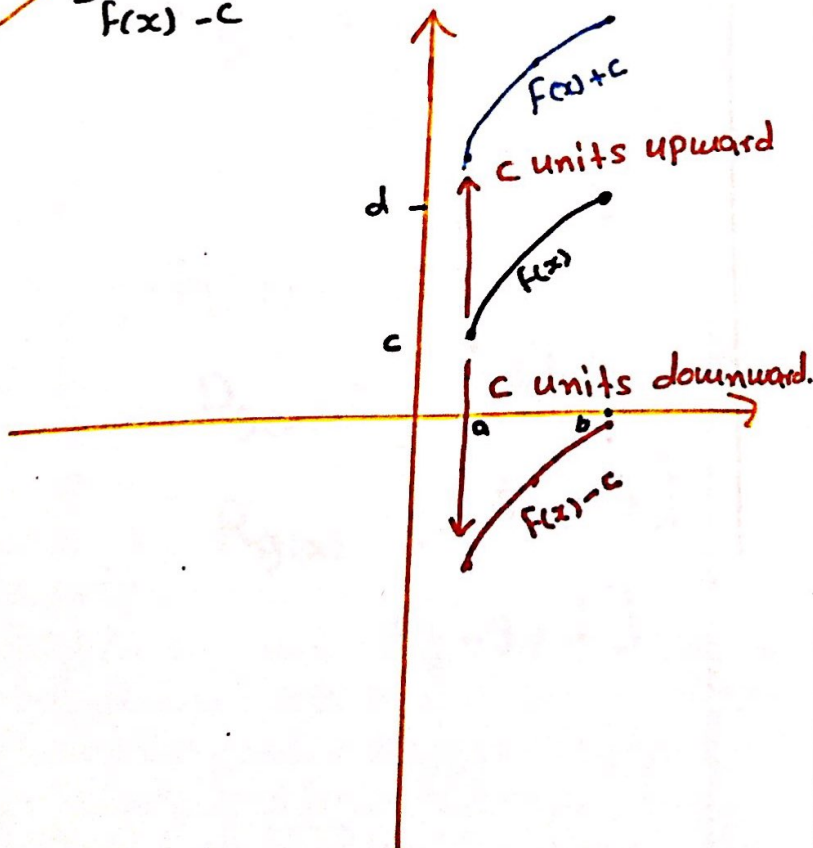 f(x) - c
f(x)+c
c units upward
d
f(x)
c
c units downward.
a
b
f(x)-c